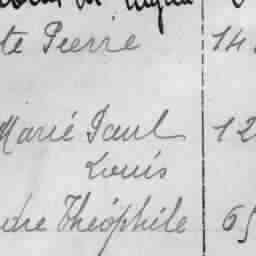 te Pierre 14
Marie Paul 12
Louis
dre Théophile 65